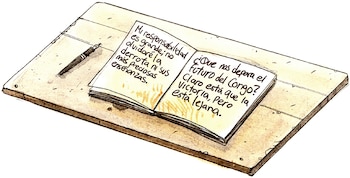 Mi responsabilidad
es grande; no
olvidaré la
derrota ni sus
más preciosas
enseñanzas.
¿Que nos depara el
futuro del Congo?
Claro está que la
victoria, pero
está lejana.